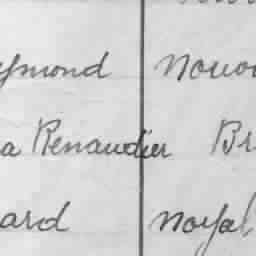 ymond Nouo
a Renaudier Br
ard Noyal